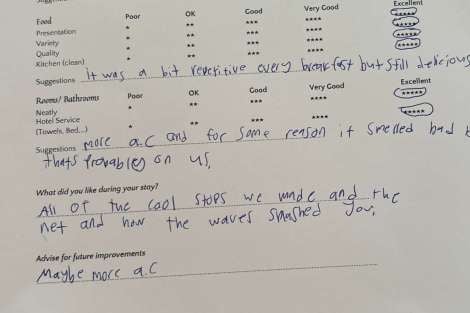 Poor OK Good Very Good Excellent
Food
Presentation * ** *** **** *****
Variety * ** *** **** *****
Quality * ** *** **** *****
Kitchen (clean) * ** *** **** *****
Suggestions It was a bit repetitive every breakfast but still delicious
Rooms/ Bathrooms Poor OK Good Very Good Excellent
Neatly * ** *** **** *****
Hotel Service
(Towels, Bed,...) * ** *** **** *****
Suggestions more a.c and for some reason it smelled bad
thats provably on us,
What did you like during your stay?
All of the cool stops we made and the
net and how the waves smashed you,
Advise for future improvements
Maybe more a.c